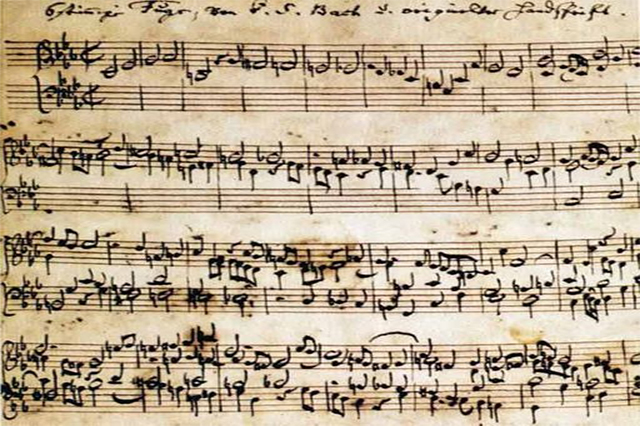 6stimige Fuge, von J. S. Bach u. origineller Handschrift.